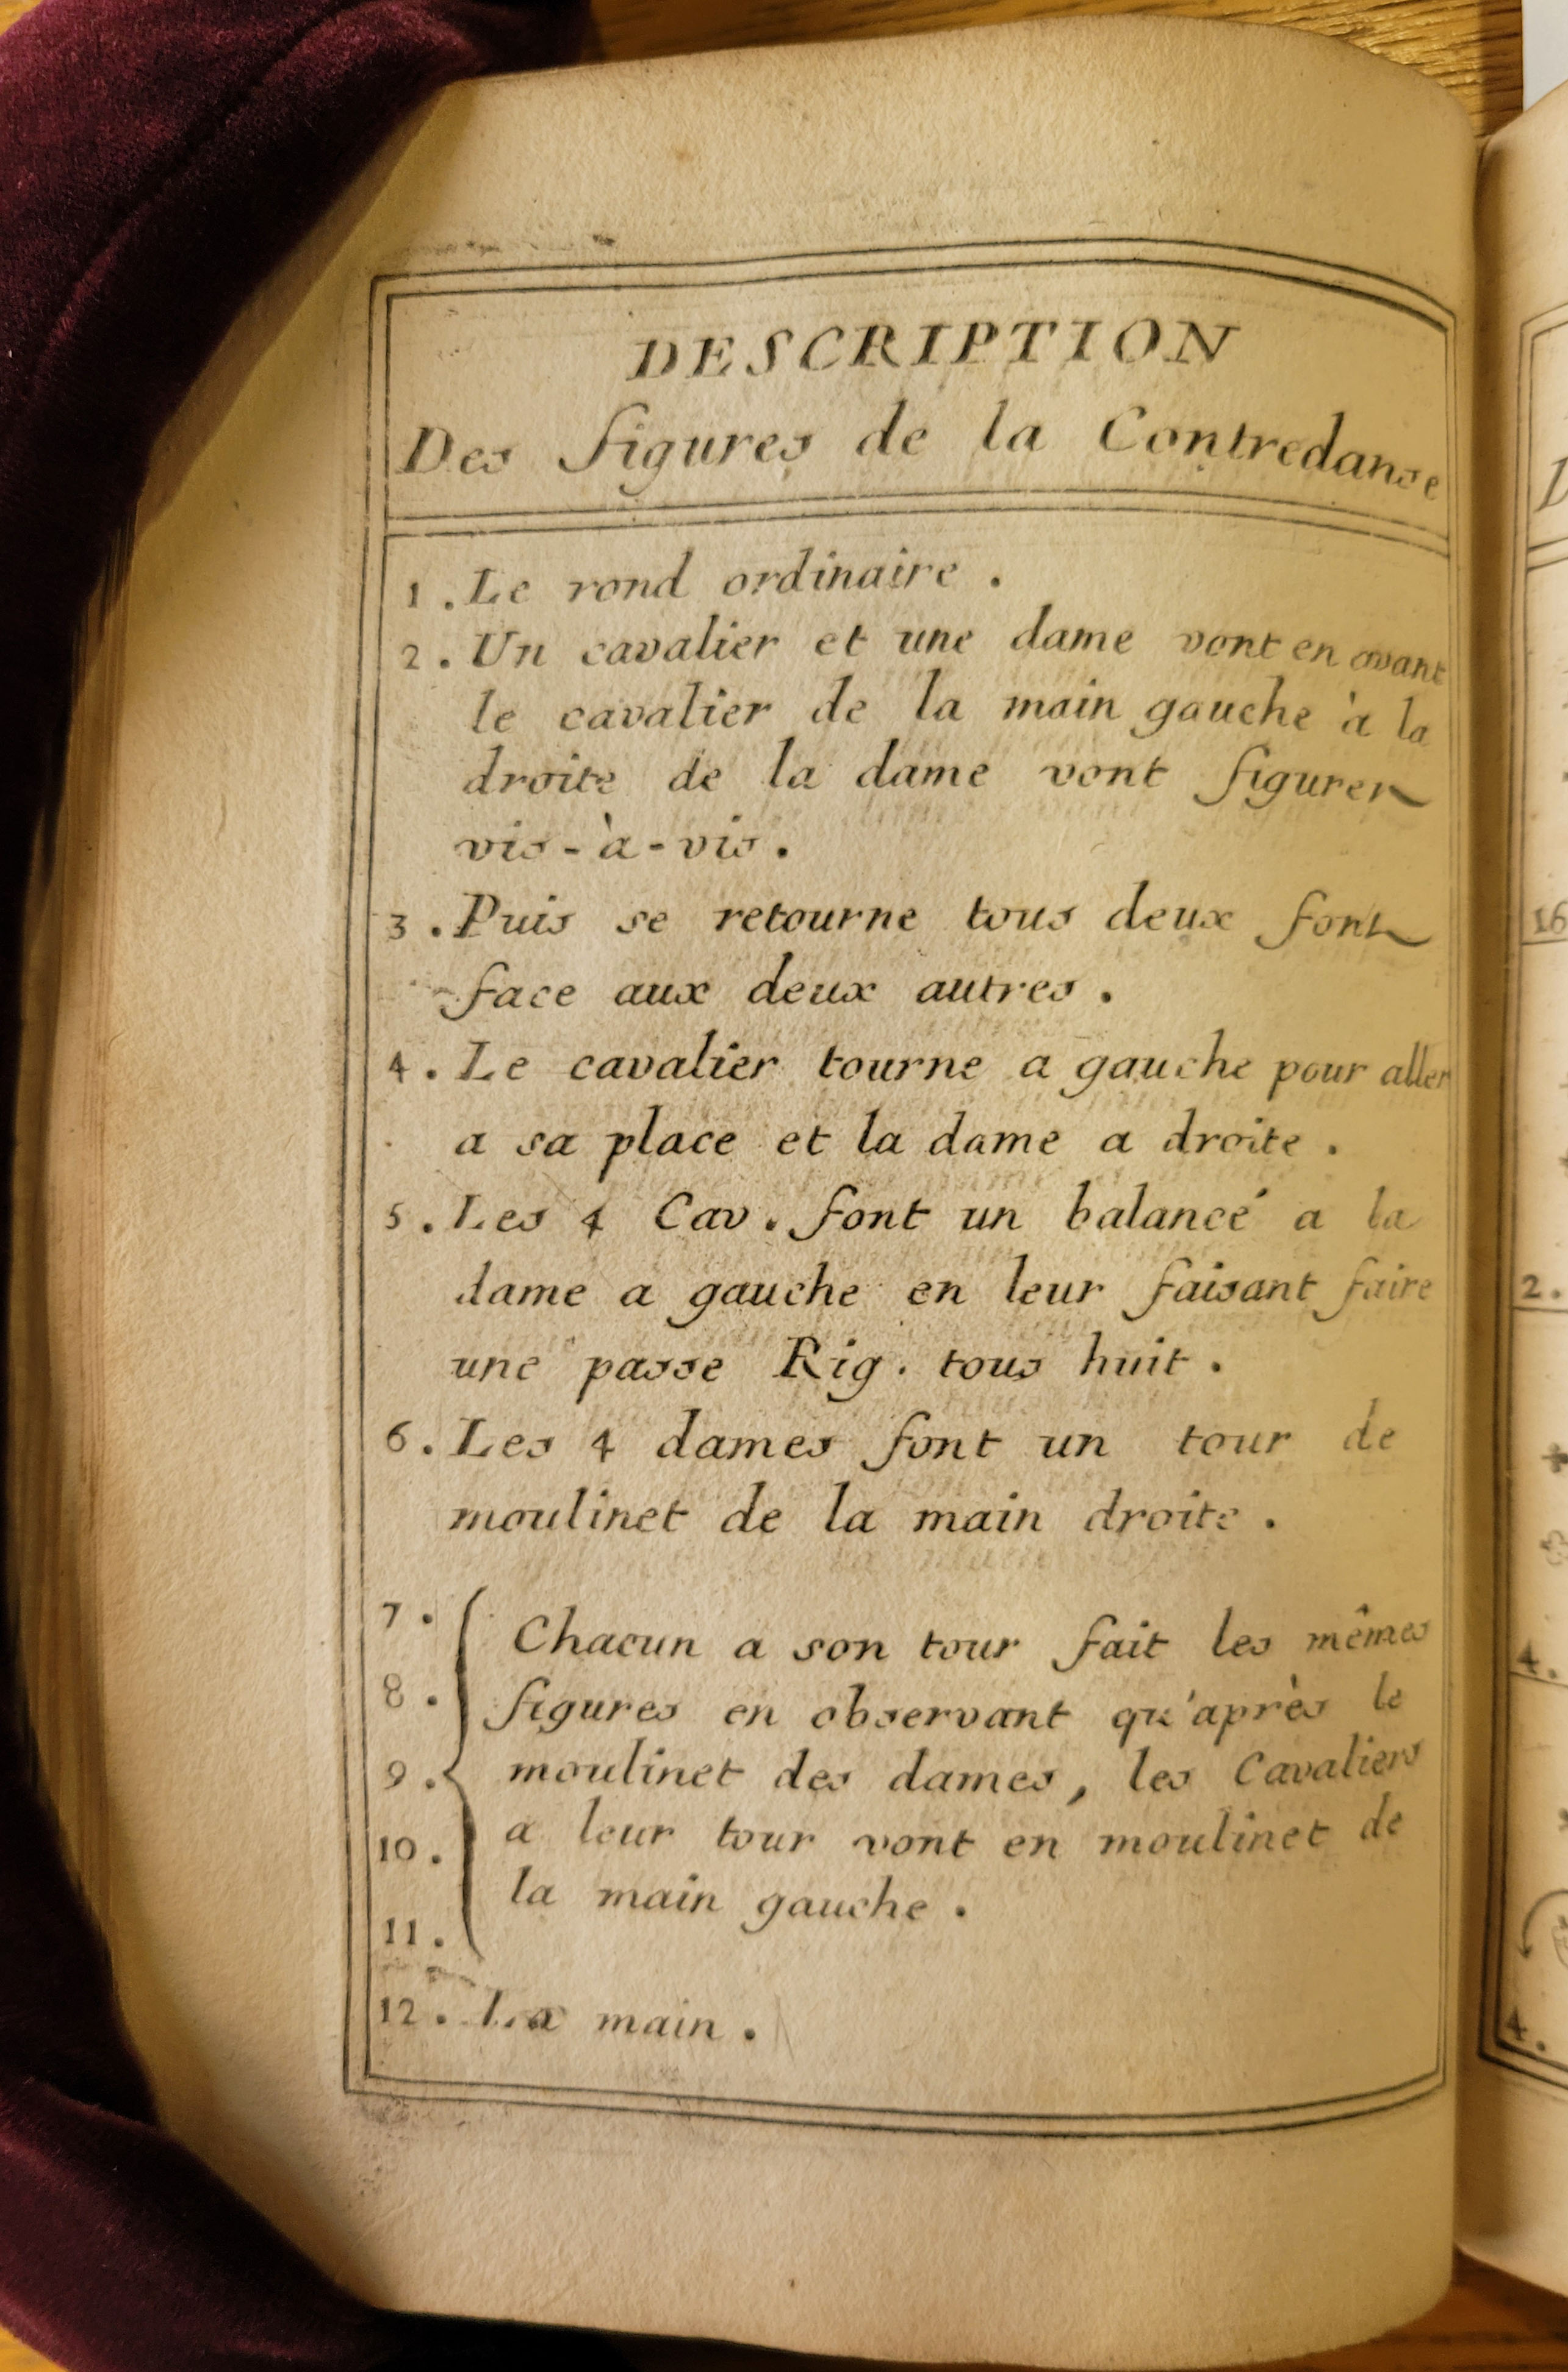 DESCRIPTION
Des figures de la Contredanse
1. Le rond ordinaire.
2. Un cavalier et une dame vont en avant
le cavalier de la main gauche à la
droite de la dame vont figurer
vis-à-vis.
3. Puis se retourne tous deux font
face aux deux autres.
4. Le cavalier tourne a gauche pour aller
a sa place et la dame a droite.
5. Les 4 Cav. font un balancé a la
dame a gauche en leur faisant faire
une passe Rig. tous huit.
6. Les 4 dames font un tour de
moulinet de la main droite.
7.
8.
9.
10.
11.
Chacun a son tour fait les mêmes
figures en observant qu'après le
moulinet des dames, les Cavaliers
a leur tour vont en moulinet de
la main gauche.
12. La main.
16
2.
4.
4.